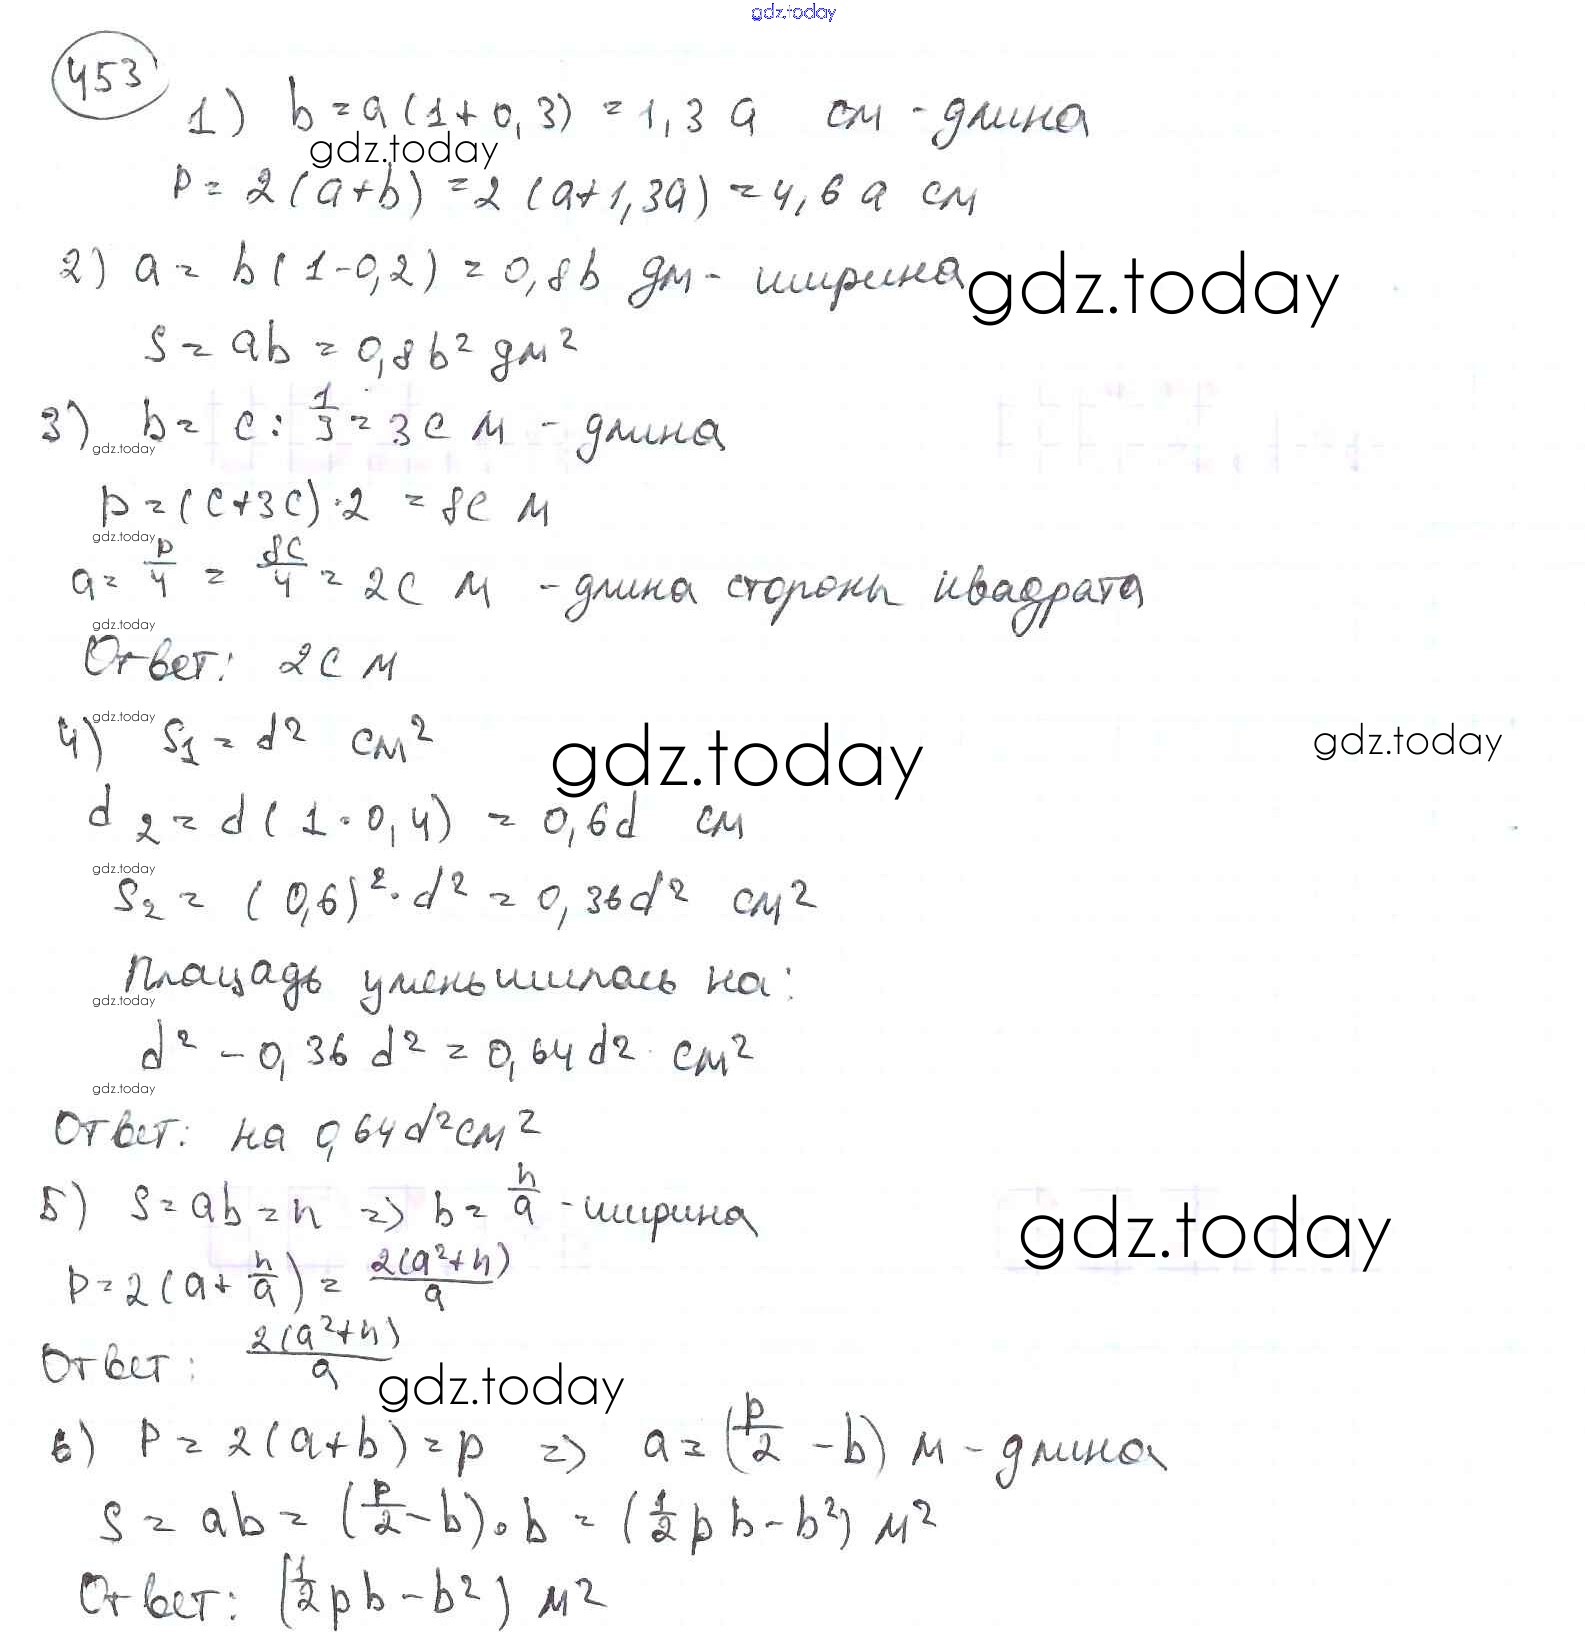 gdz.today
453
1) b = a(1+0,3) = 1,3 a см - длина
gdz.today
P = 2(a+b) = 2(a+1,3a) = 4,6 a см
2) a = b(1-0,2) = 0,8b дм - ширина gdz.today
S = ab = 0,8b² дм²
3) b = c : 1/3 = 3c м - длина
gdz.today
p = (c+3c)·2 = 8c м
gdz.today
a = p/4 = 8c/4 = 2c м - длина стороны квадрата
gdz.today
Ответ: 2c м
gdz.today
4) S₁ = d² см² gdz.today gdz.today
d₂ = d(1-0,4) = 0,6d см
gdz.today
S₂ = (0,6)²·d² = 0,36d² см²
Площадь уменьшилась на:
gdz.today
d² - 0,36 d² = 0,64d² см²
gdz.today
Ответ: на 0,64d² см²
5) S = ab = n => b = n/a - ширина gdz.today
P = 2(a + n/a) = 2(a²+n)/a
Ответ: 2(a²+n)/a
gdz.today
6) P = 2(a+b) = p => a = (p/2 - b) м - длина
S = ab = (p/2 - b)·b = (1/2 pb - b²) м²
Ответ: (1/2 pb - b²) м²